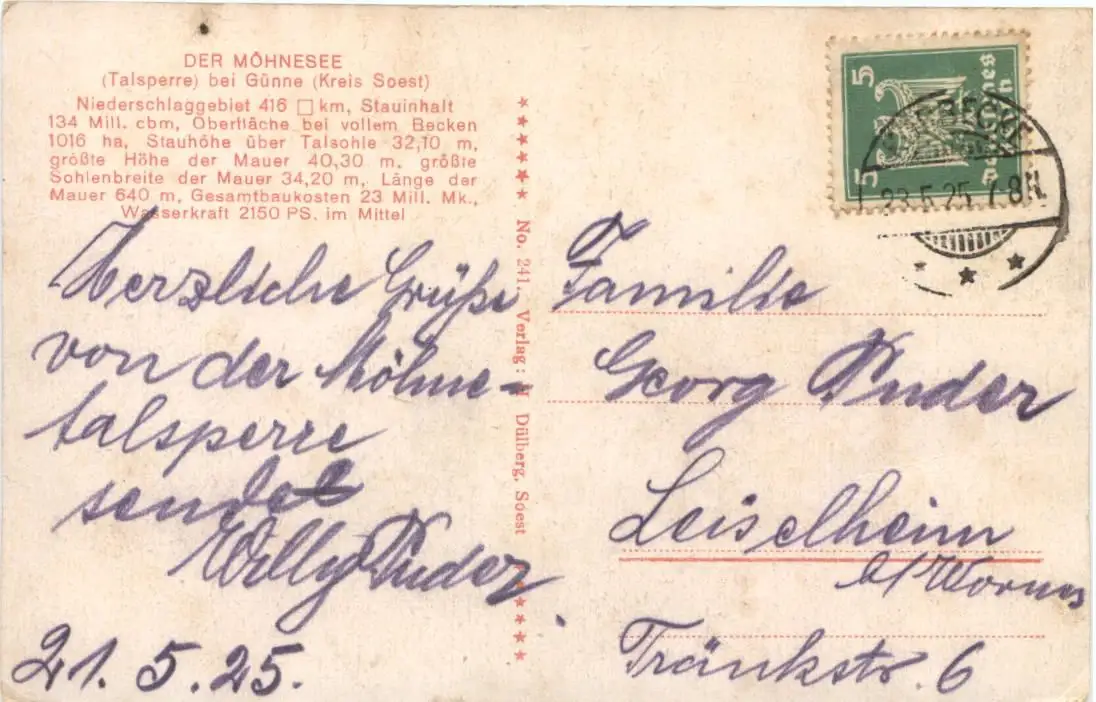 DER MÖHNESEE
(Talsperre) bei Günne (Kreis Soest)
Niederschlaggebiet 416 □ km, Stauinhalt
134 Mill. cbm, Oberfläche bei vollem Becken
1016 ha, Stauhöhe über Talsohle 32,10 m,
größte Höhe der Mauer 40,30 m, größte
Sohlenbreite der Mauer 34,20 m, Länge der
Mauer 640 m, Gesamtbaukosten 23 Mill. Mk.,
Wasserkraft 2150 PS. im Mittel
Herzliche Grüße
von der Möhne-
talsperre
sendet
Willy Puder
21.5.25.
No. 241. Verlag: Dülberg, Soest
5 5
Deutsches Reich
23.5.25. 7-8N.
Familie
Georg Puder
Leiselheim
b/Worms
Tränkstr. 6